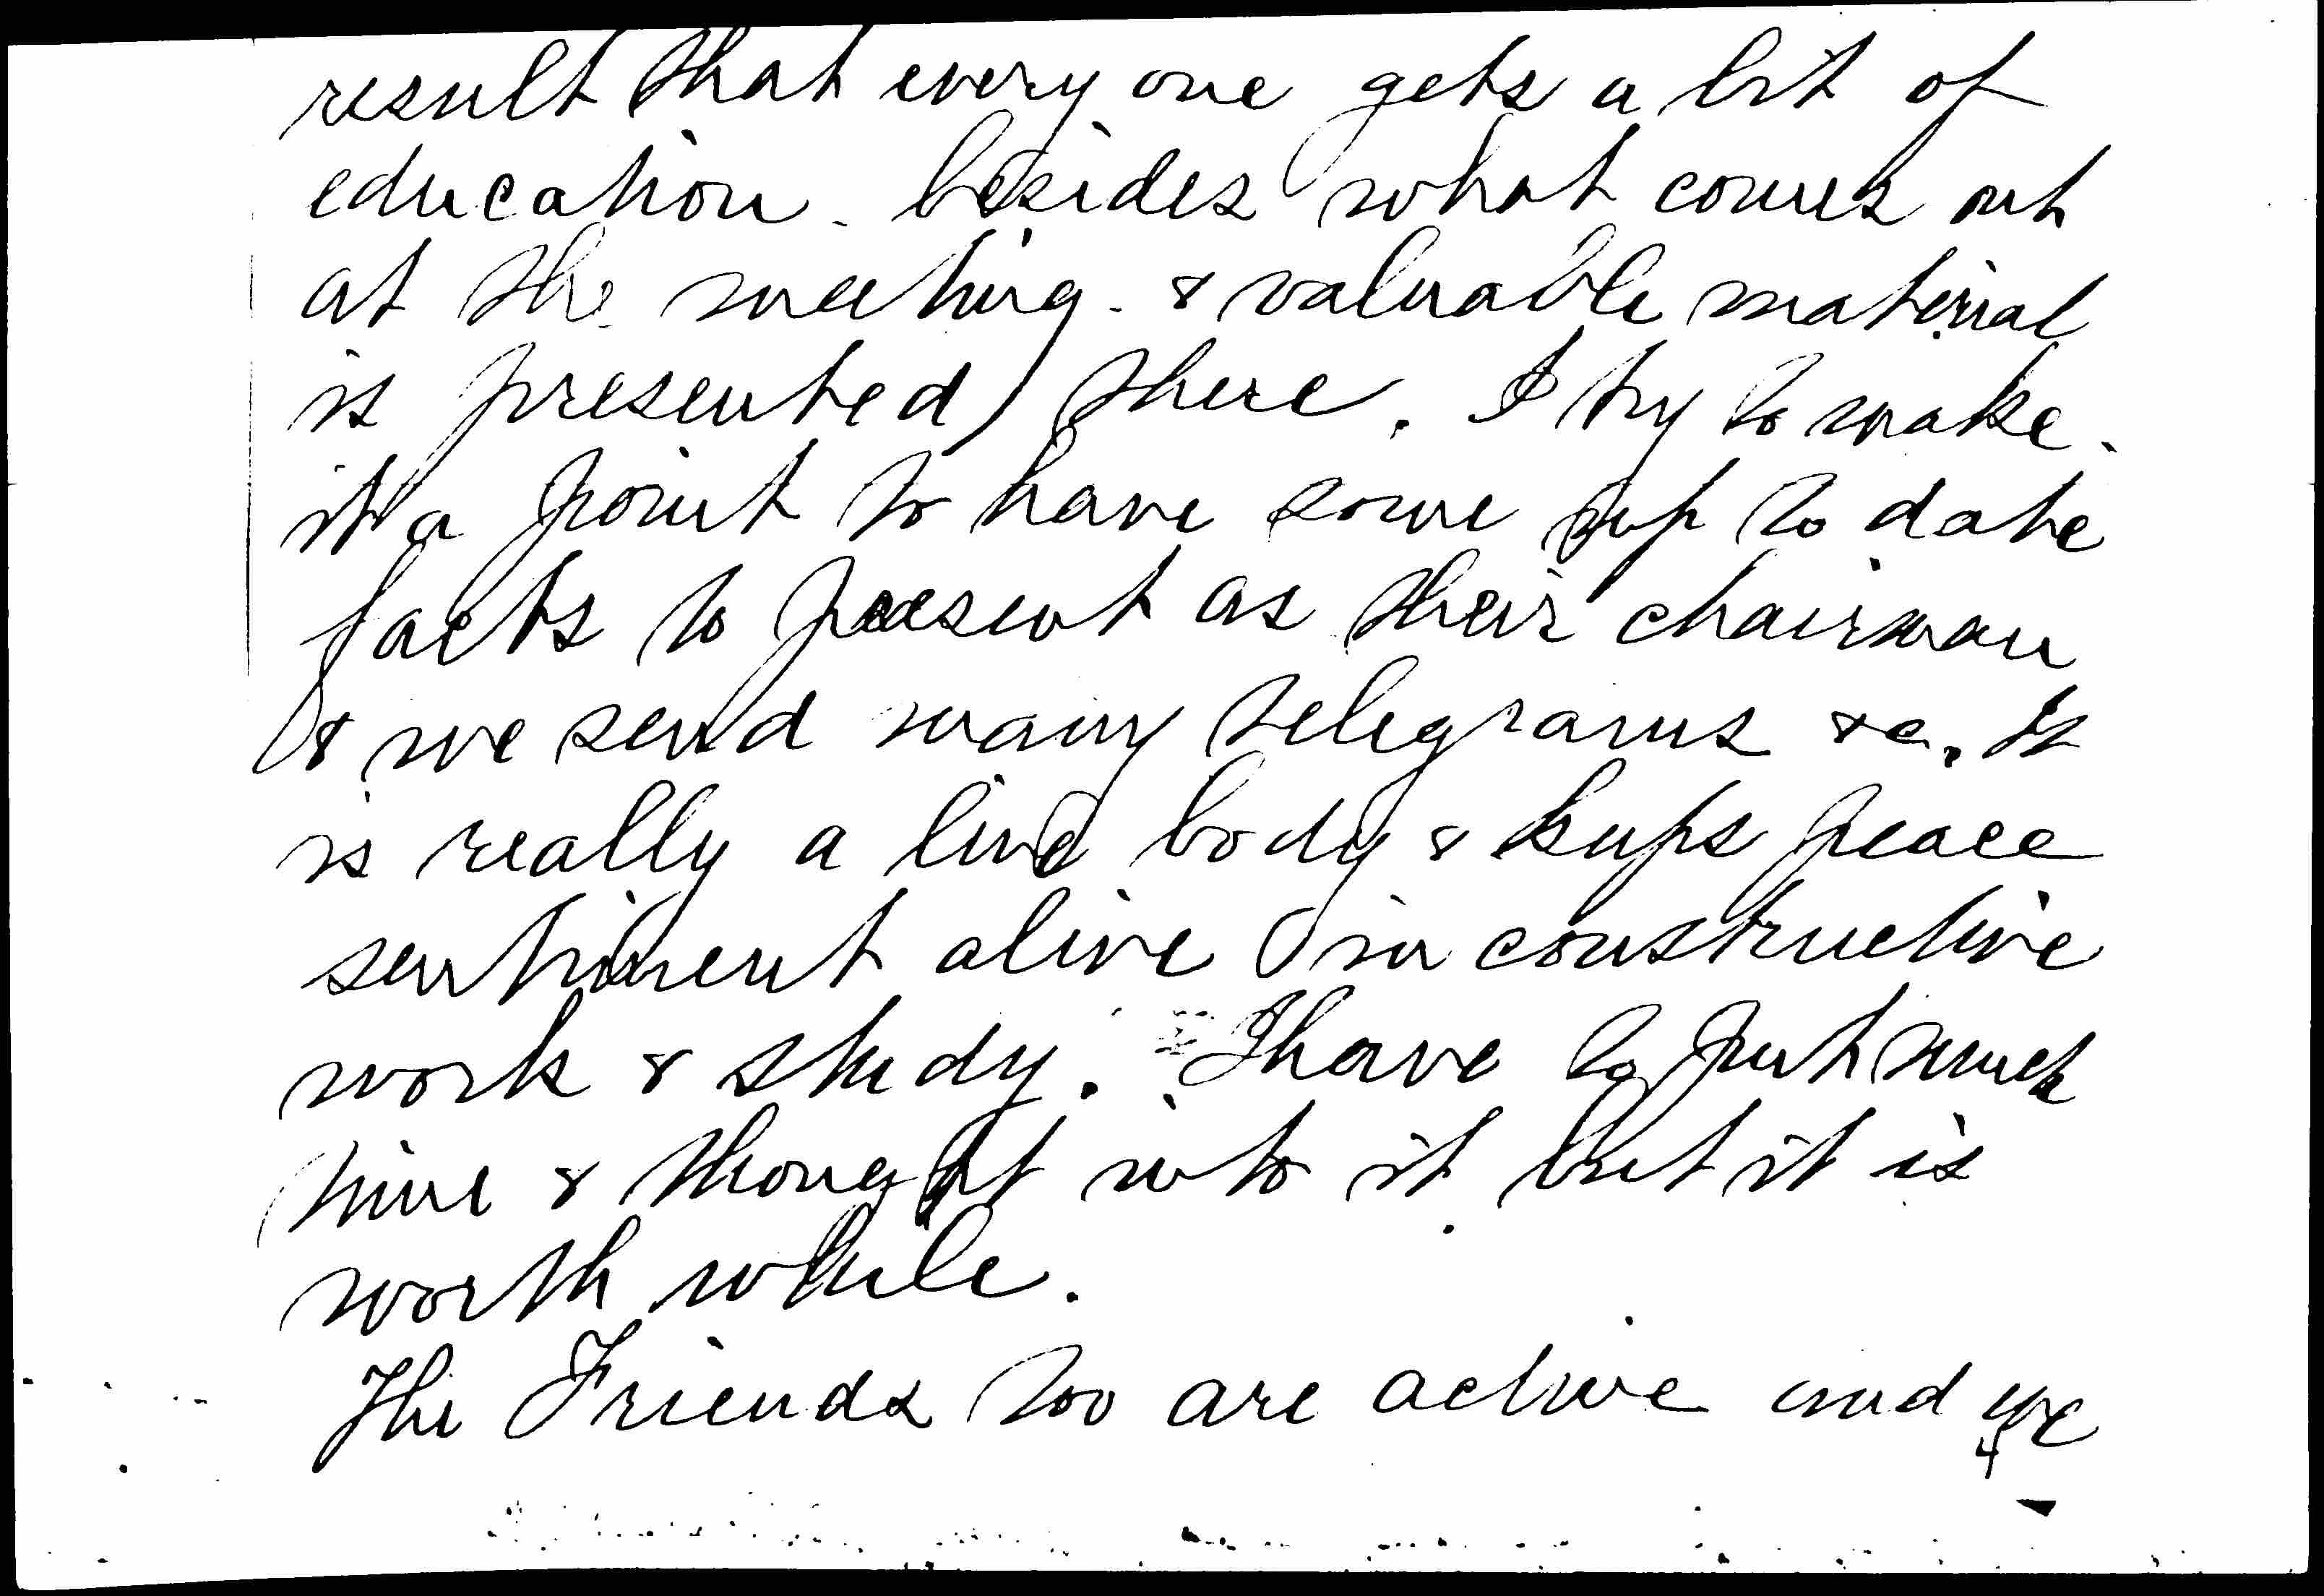 result that every one gets a bit of
education - besides what comes out
at the meeting - & valuable material
is presented there. I try to make
it a point to have some up to date
facts to present as their chairman
& we send many telegrams &c. It
is really a live body & keeps peace
sentiment alive in constructive
work & study. I have to put much
time & thought into it but it is
worth while.
The Friends too are active and we
4